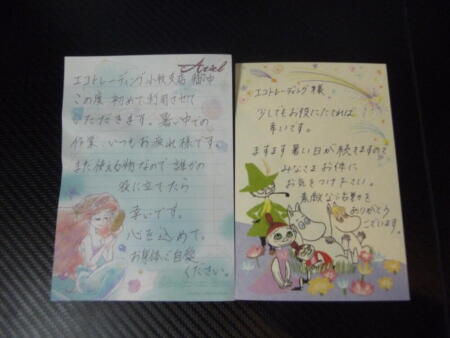 Ariel
エコトレーディング小牧支店 御中
この度 初めて利用させて
いただきます。暑い中での
作業、いつもお疲れ様です。
まだ使える物なので 誰かの
役に立てたら
幸いです。
心を込めて。
お身体ご自愛
ください。
エコトレーディング様
少しでもお役にたてれば
幸いです。
ますます暑い日が続きますので
みなさまお体に
お気をつけ下さい。
素敵な活動を
ありがとう
ございます。